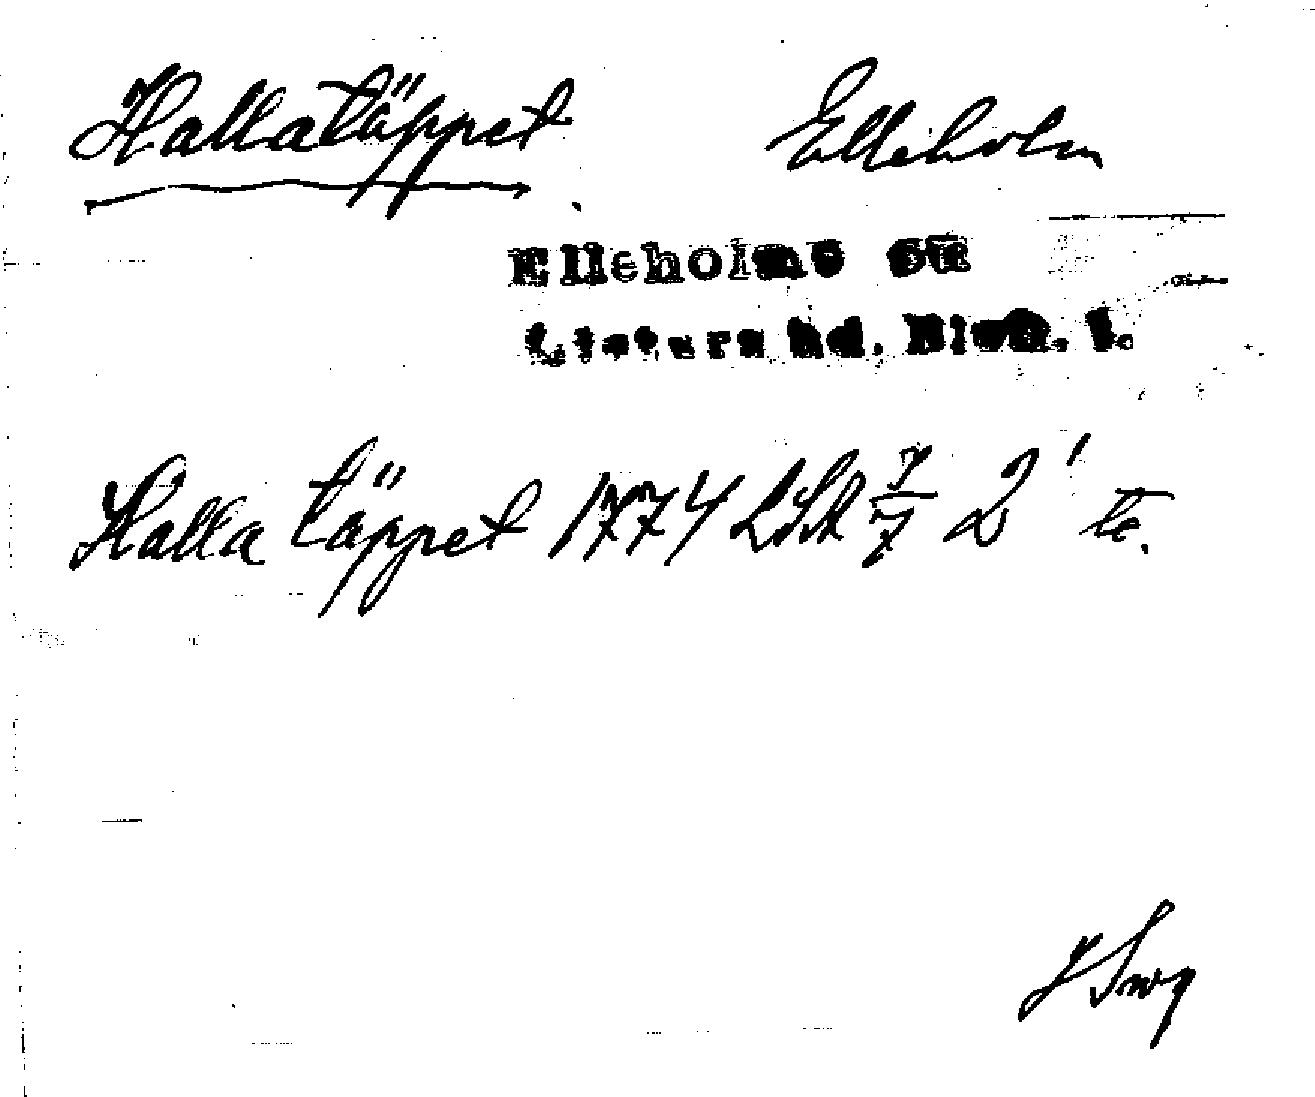 Hallatäppet Elleholm
Elleholms sn
Listers hd. Blek. l.
Halla täppet 1774 LSA 7/7 2' te.